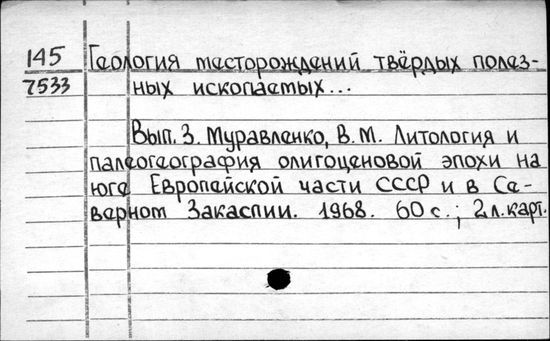 145 Геология месторождений твёрдых полез-
7533 ных ископаемых...
Вып. 3. Муравленко, В. М. Литология и
палеогеография олигоценовой эпохи на
юге Европейской части СССР и в Се-
верном Закаспии. 1968. 60 с.; 2 л. карт.